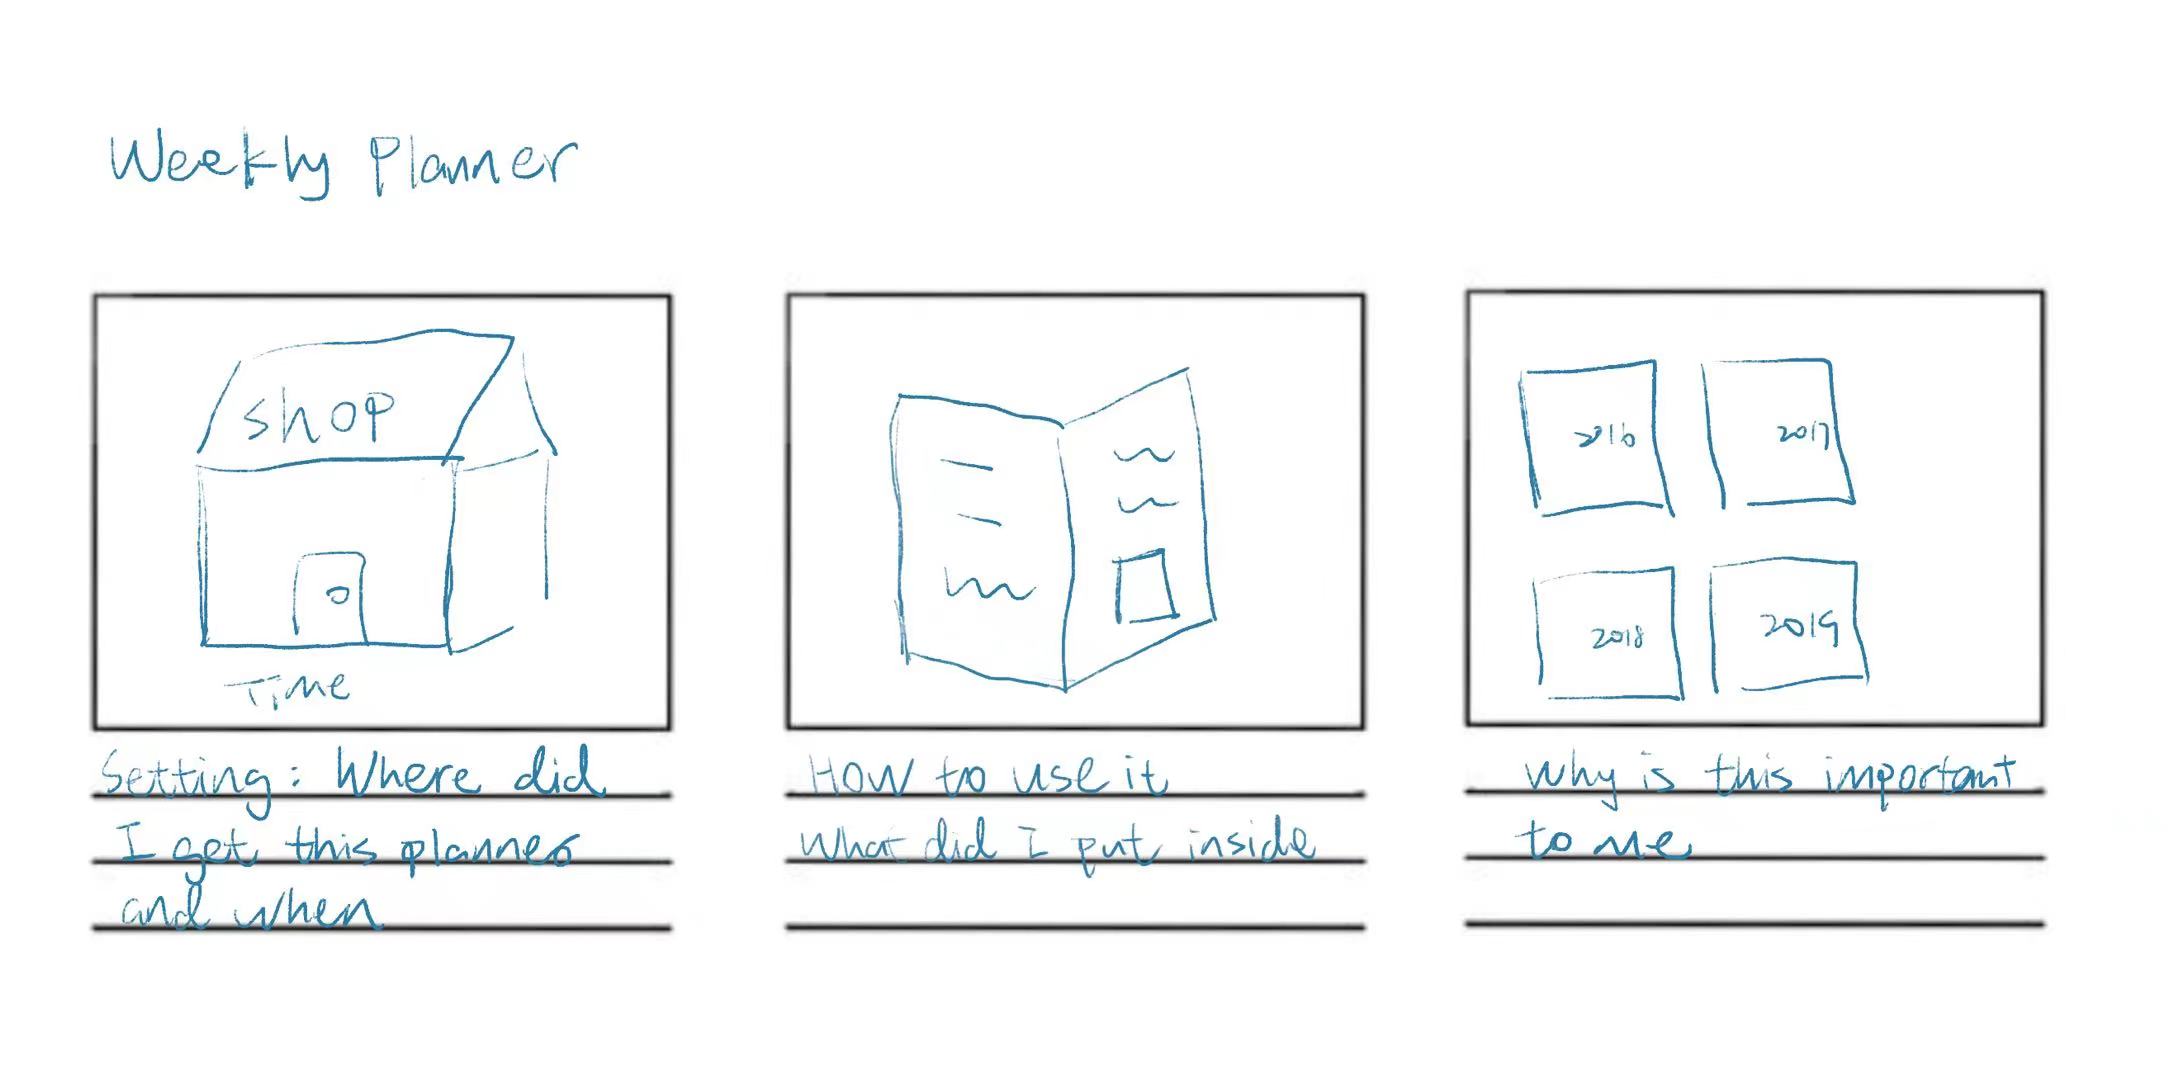 Weekly Planner
shop
Time
Setting: Where did
I get this planner
and when
How to use it
What did I put inside
2016
2017
2018
2019
Why is this important
to me